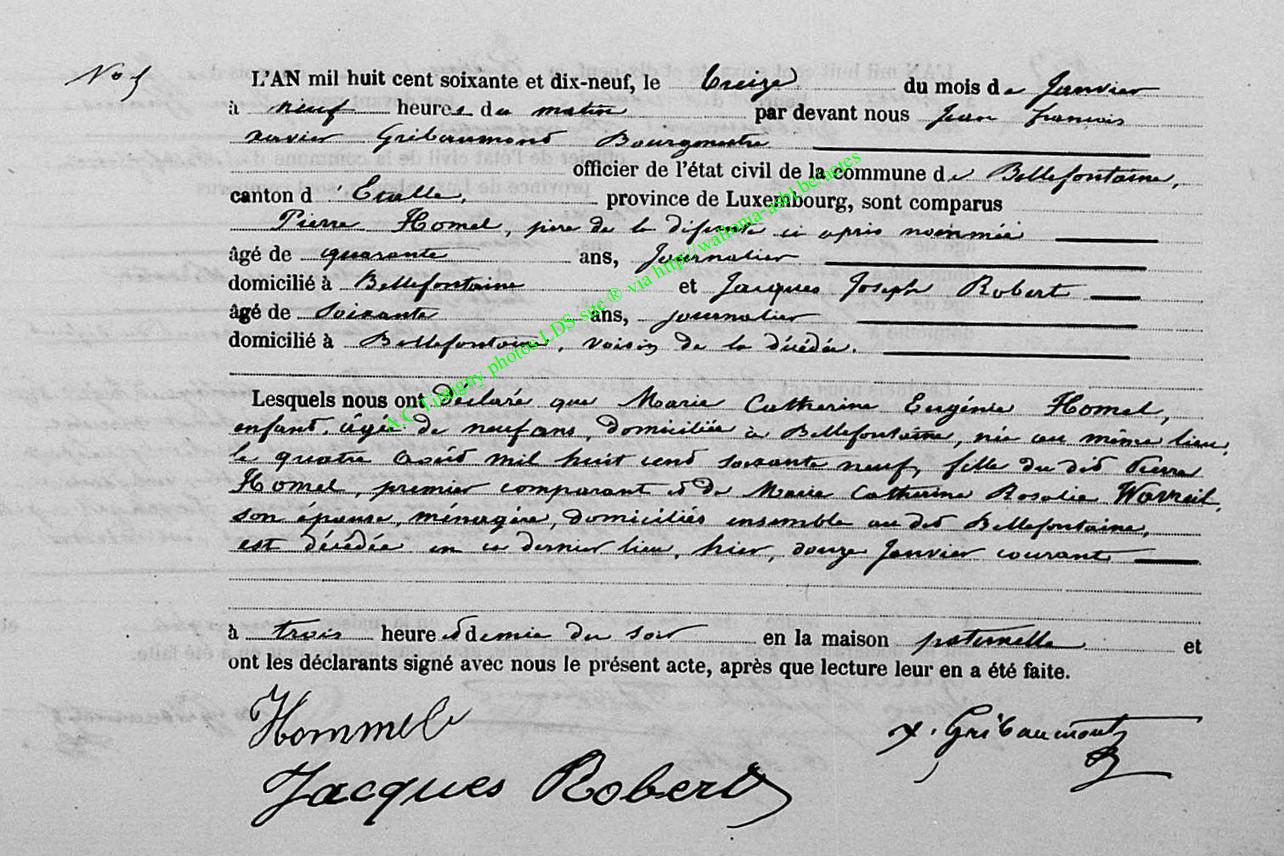 No 5
L'AN mil huit cent soixante et dix-neuf, le treize du mois de Janvier
à neuf heures du matin par devant nous Jean François
xavier Gribaumont Bourgmestre
officier de l'état civil de la commune de Bellefontaine,
canton d'Etalle, province de Luxembourg, sont comparus
Pierre Homel, père de la défunte ci après nommée
âgé de quarante ans, Journalier
domicilié à Bellefontaine et Jacques Joseph Robert
âgé de soixante ans, journalier
domicilié à Bellefontaine, voisin de la décédée.
Lesquels nous ont déclaré que Marie Catherine Eugénie Homel,
enfant, âgée de neuf ans, domiciliée à Bellefontaine, née au même lieu,
le quatre Août mil huit cent soixante neuf, fille du dit Pierre
Homel, premier comparant et de Marie Catherine Rosalie
son épouse, ménagère, domiciliés ensemble au dit Bellefontaine,
est décédée en ce dernier lieu, hier, douze Janvier courant
à trois heure et demie du soir en la maison paternelle et
ont les déclarants signé avec nous le présent acte, après que lecture leur en a été faite.
Hommel
x. Gribaumont
Jacques Robert
photos LDS site ® via http//wallonia-asbl.be/actes